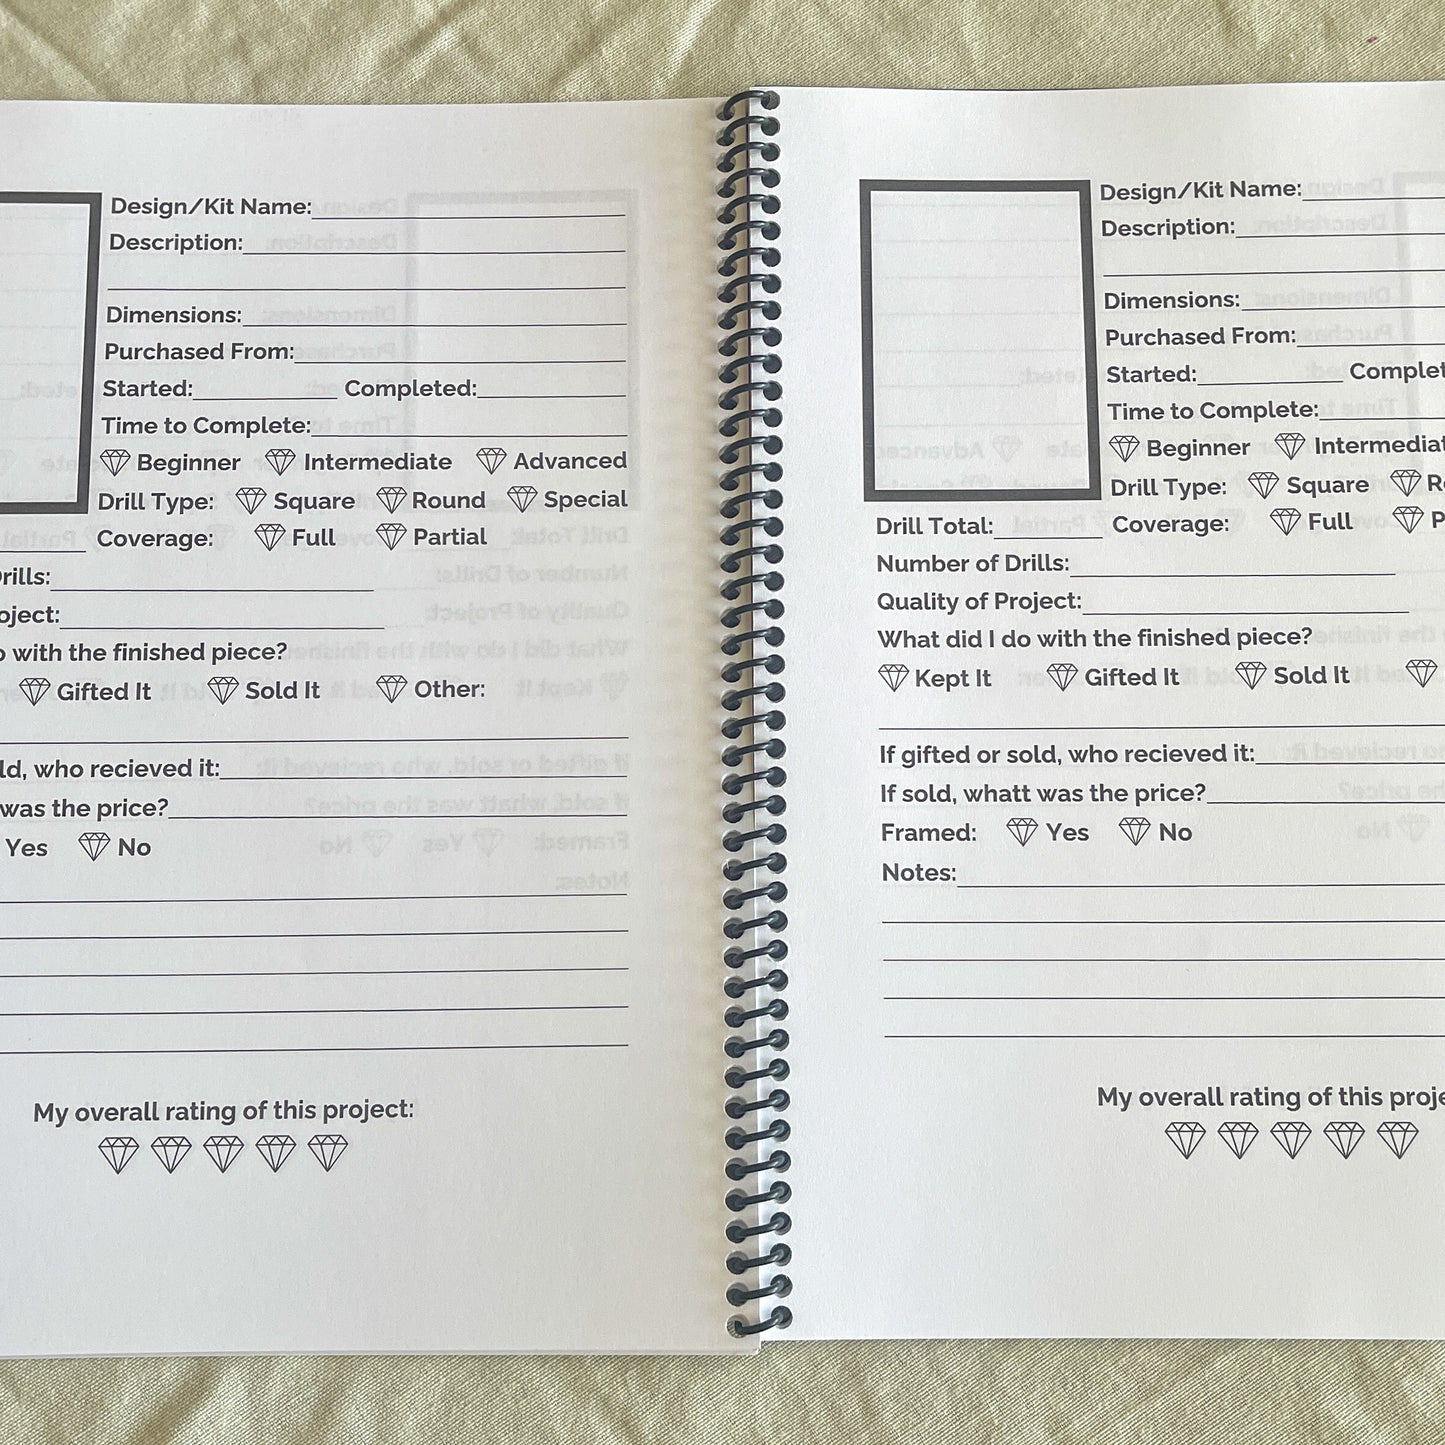 Design/Kit Name:
Description:
Dimensions:
Purchased From:
Started: Completed:
Time to Complete:
Beginner Intermediate Advanced
Drill Type: Square Round Special
Coverage: Full Partial
Drills:
oject:
o with the finished piece?
Gifted It Sold It Other:
ld, who recieved it:
was the price?
Yes No
My overall rating of this project:
Design/Kit Name:
Description:
Dimensions:
Purchased From:
Started: Complet
Time to Complete:
Beginner Intermediat
Drill Type: Square R
Drill Total: Coverage: Full P
Number of Drills:
Quality of Project:
What did I do with the finished piece?
Kept It Gifted It Sold It
If gifted or sold, who recieved it:
If sold, whatt was the price?
Framed: Yes No
Notes:
My overall rating of this proje